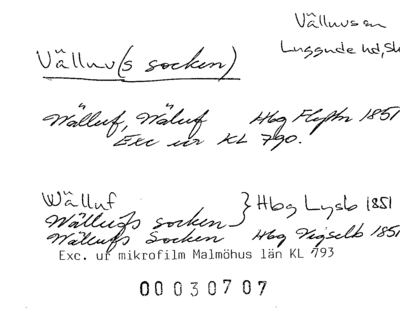 Välluvs sn
Luggude hd, Sk
Välluv(s socken)
Wälluf, Wäluf Hbg Flyttn 1851
Exc ur KL 790.
Wälluf } Hbg Lysb 1851
Wällufs socken
Wällufs Socken Hbg Vigselb 1851
Exc. ur mikrofilm Malmöhus län KL 793
00030707